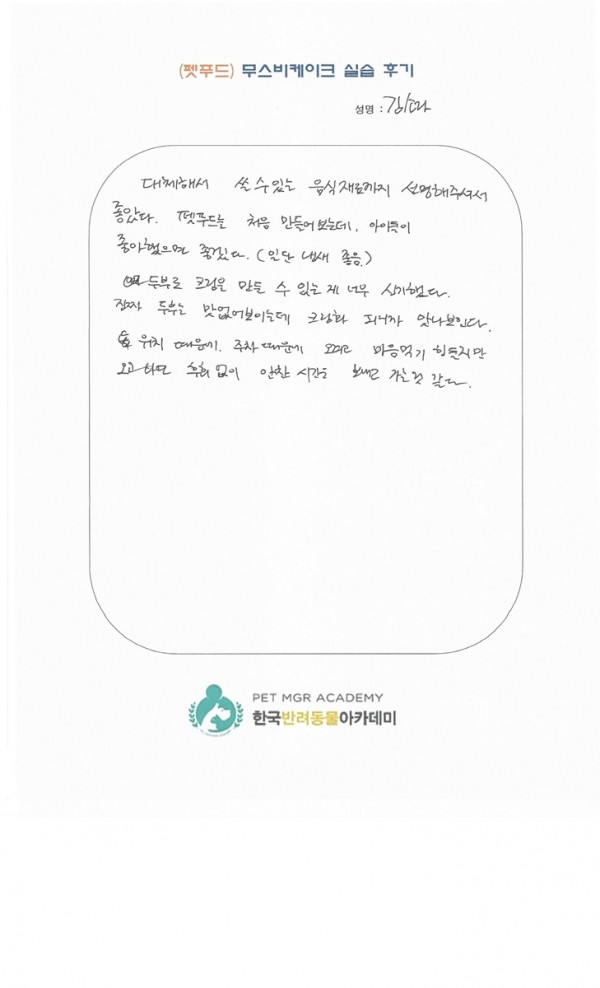 (펫푸드) 무스비케이크 실습 후기
성명 :
대체해서 쓸 수 있는 음식재료까지 설명해주셔서
좋았다. 펫푸드를 처음 만들어보는데, 아이들이
좋아했으면 좋겠다. (일단 냄새 좋음)
두부로 크림을 만들 수 있는 게 너무 신기했다.
진짜 두부는 맛없어보이는데 크림화 되니까 맛나보인다.
위치 때문에, 주차 때문에 오려고 마음먹기 힘든지만
오고 하면 후회 없이 알찬 시간을 보내고 가는 것 같다.
PET MGR ACADEMY
한국반려동물아카데미